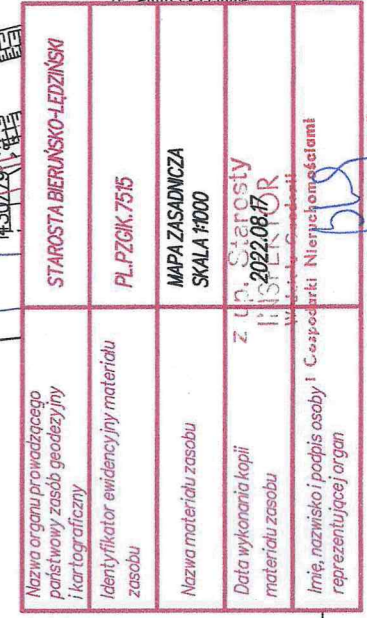 Nazwa organu prowadzącego
państwowy zasób geodezyjny
i kartograficzny
STAROSTA BIERUŃSKO-LĘDZIŃSKI
Identyfikator ewidencyjny materiału
zasobu
PL.PZGIK.7515
Nazwa materiału zasobu
MAPA ZASADNICZA
SKALA 1:1000
Data wykonania kopii
materiału zasobu
z up. Starosty
INSPEKTOR
2022.08.17
Imię, nazwisko i podpis osoby
reprezentującej organ
i Gospodarki Nieruchomościami